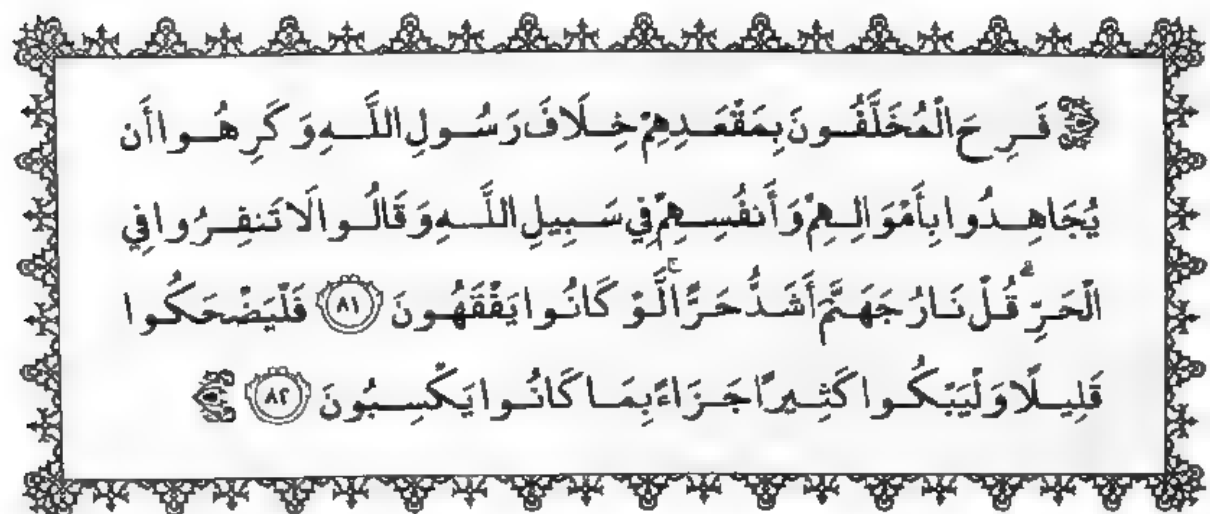 فَرِحَ الْمُخَلَّفُونَ بِمَقْعَدِهِمْ خِلَافَ رَسُولِ اللَّهِ وَكَرِهُوا أَن
يُجَاهِدُوا بِأَمْوَالِهِمْ وَأَنفُسِهِمْ فِي سَبِيلِ اللَّهِ وَقَالُوا لَا تَنفِرُوا فِي
الْحَرِّ ۗ قُلْ نَارُ جَهَنَّمَ أَشَدُّ حَرًّا ۚ لَّوْ كَانُوا يَفْقَهُونَ ٨١ فَلْيَضْحَكُوا
قَلِيلًا وَلْيَبْكُوا كَثِيرًا جَزَاءً بِمَا كَانُوا يَكْسِبُونَ ٨٢